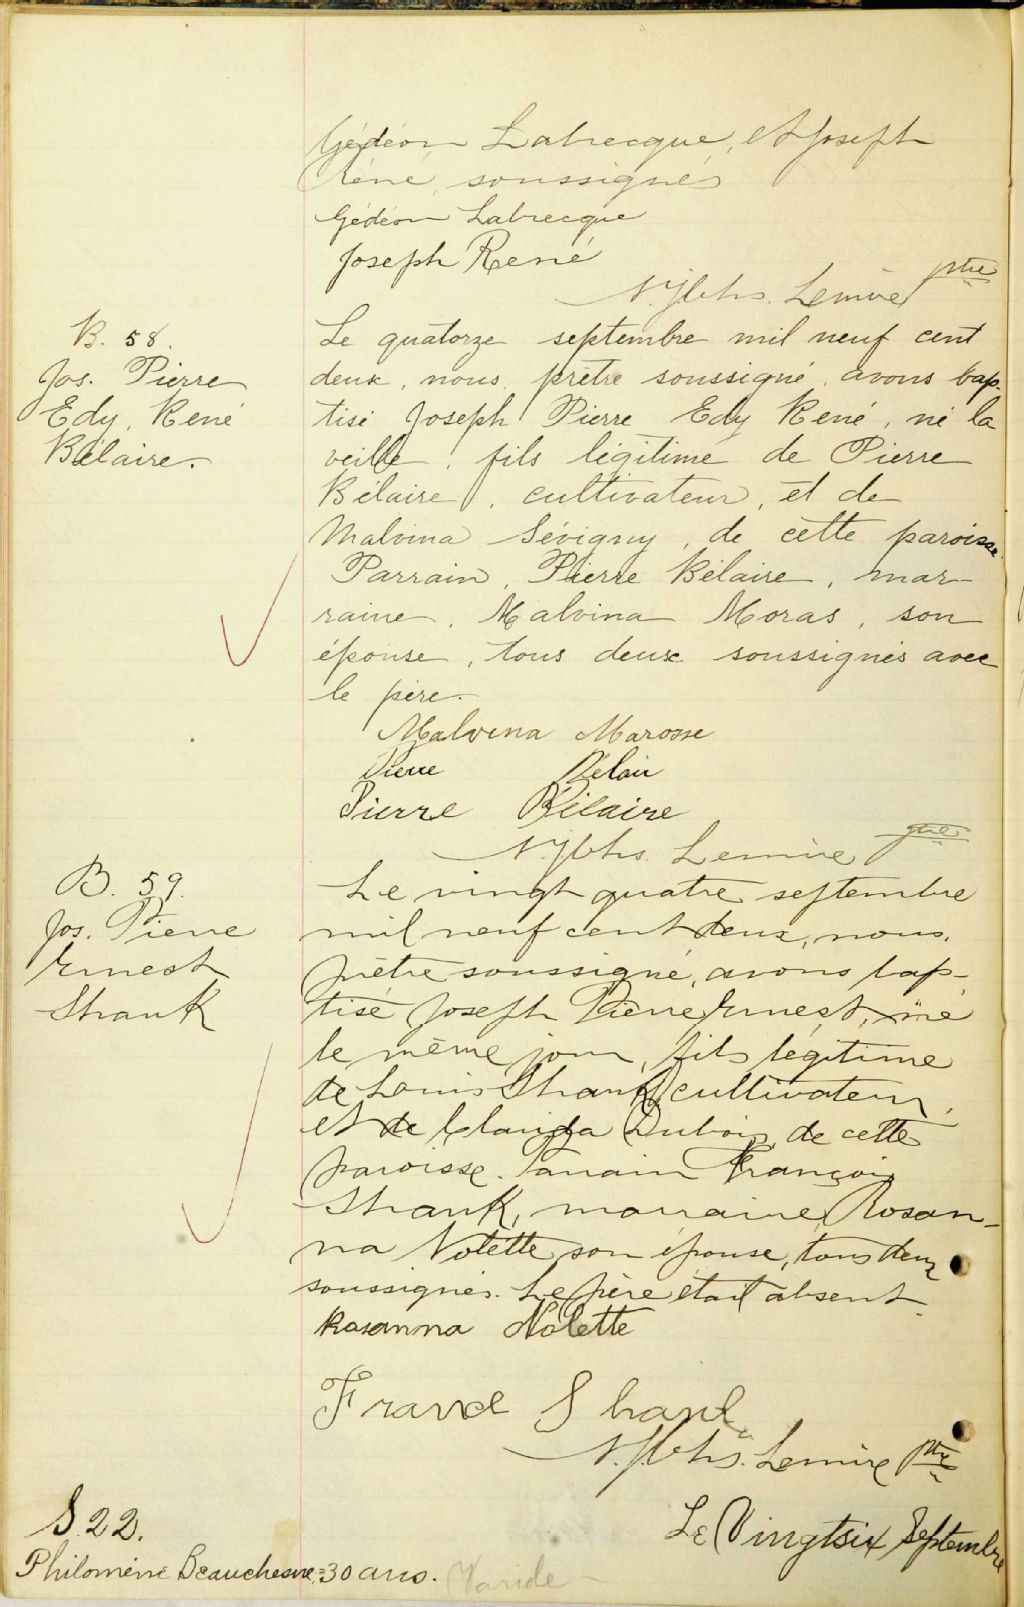 Gédéon Labrecque, et Joseph
René, soussignés
Gédéon Labrecque
Joseph René
Lemire ptre
B. 58.
Jos. Pierre
Edy, René
Bélaire.
Le quatorze septembre mil neuf cent
deux, nous, prêtre soussigné, avons bap-
tisé Joseph Pierre Edy René, né la
veille, fils légitime de Pierre
Bélaire, cultivateur, et de
Malvina Sévigny, de cette paroisse.
Parrain, Pierre Bélaire, mar-
raine, Malvina Moras, son
épouse, tous deux soussignés avec
le père.
Malvena Marosse
Pierre Bélair
Pierre Bélaire
Lemire ptre
B. 59.
Jos. Pierre
Ernest
Shank
Le vingt quatre septembre
mil neuf cent deux, nous,
prêtre soussigné, avons bap-
tisé Joseph Pierre Ernest, né
le même jour, fils légitime
de Louis Shank, cultivateur,
et de Dubois, de cette
paroisse. Parrain François
Shank, marraine Rosan-
na Nolette son épouse, tous deux
soussignés. Le père était absent.
Rosanna Nolette
Shank
Lemire ptre
S. 22.
Philomène Beauchesne, 30 ans.
Le Vingtsix Septembre